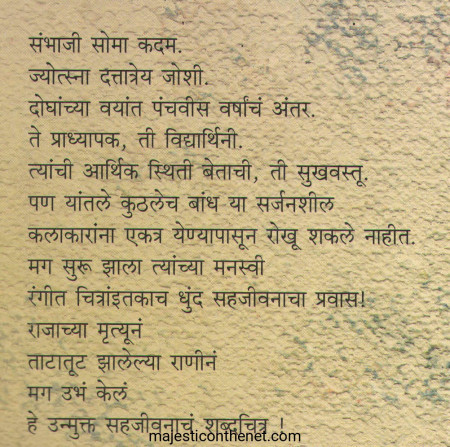 संभाजी सोमा कदम.
ज्योत्स्ना दत्तात्रेय जोशी.
दोघांच्या वयांत पंचवीस वर्षांचं अंतर.
ते प्राध्यापक, ती विद्यार्थिनी.
त्यांची आर्थिक स्थिती बेताची, ती सुखवस्तू.
पण यांतले कुठलेच बांध या सर्जनशील
कलाकारांना एकत्र येण्यापासून रोखू शकले नाहीत.
मग सुरू झाला त्यांच्या मनस्वी
रंगीत चित्रांइतकाच धुंद सहजीवनाचा प्रवास!
राजाच्या मृत्यूनं
ताटातूट झालेल्या राणीनं
मग उभं केलं
हे उन्मुक्त सहजीवनाचं शब्दचित्र !
majesticonthenet.com